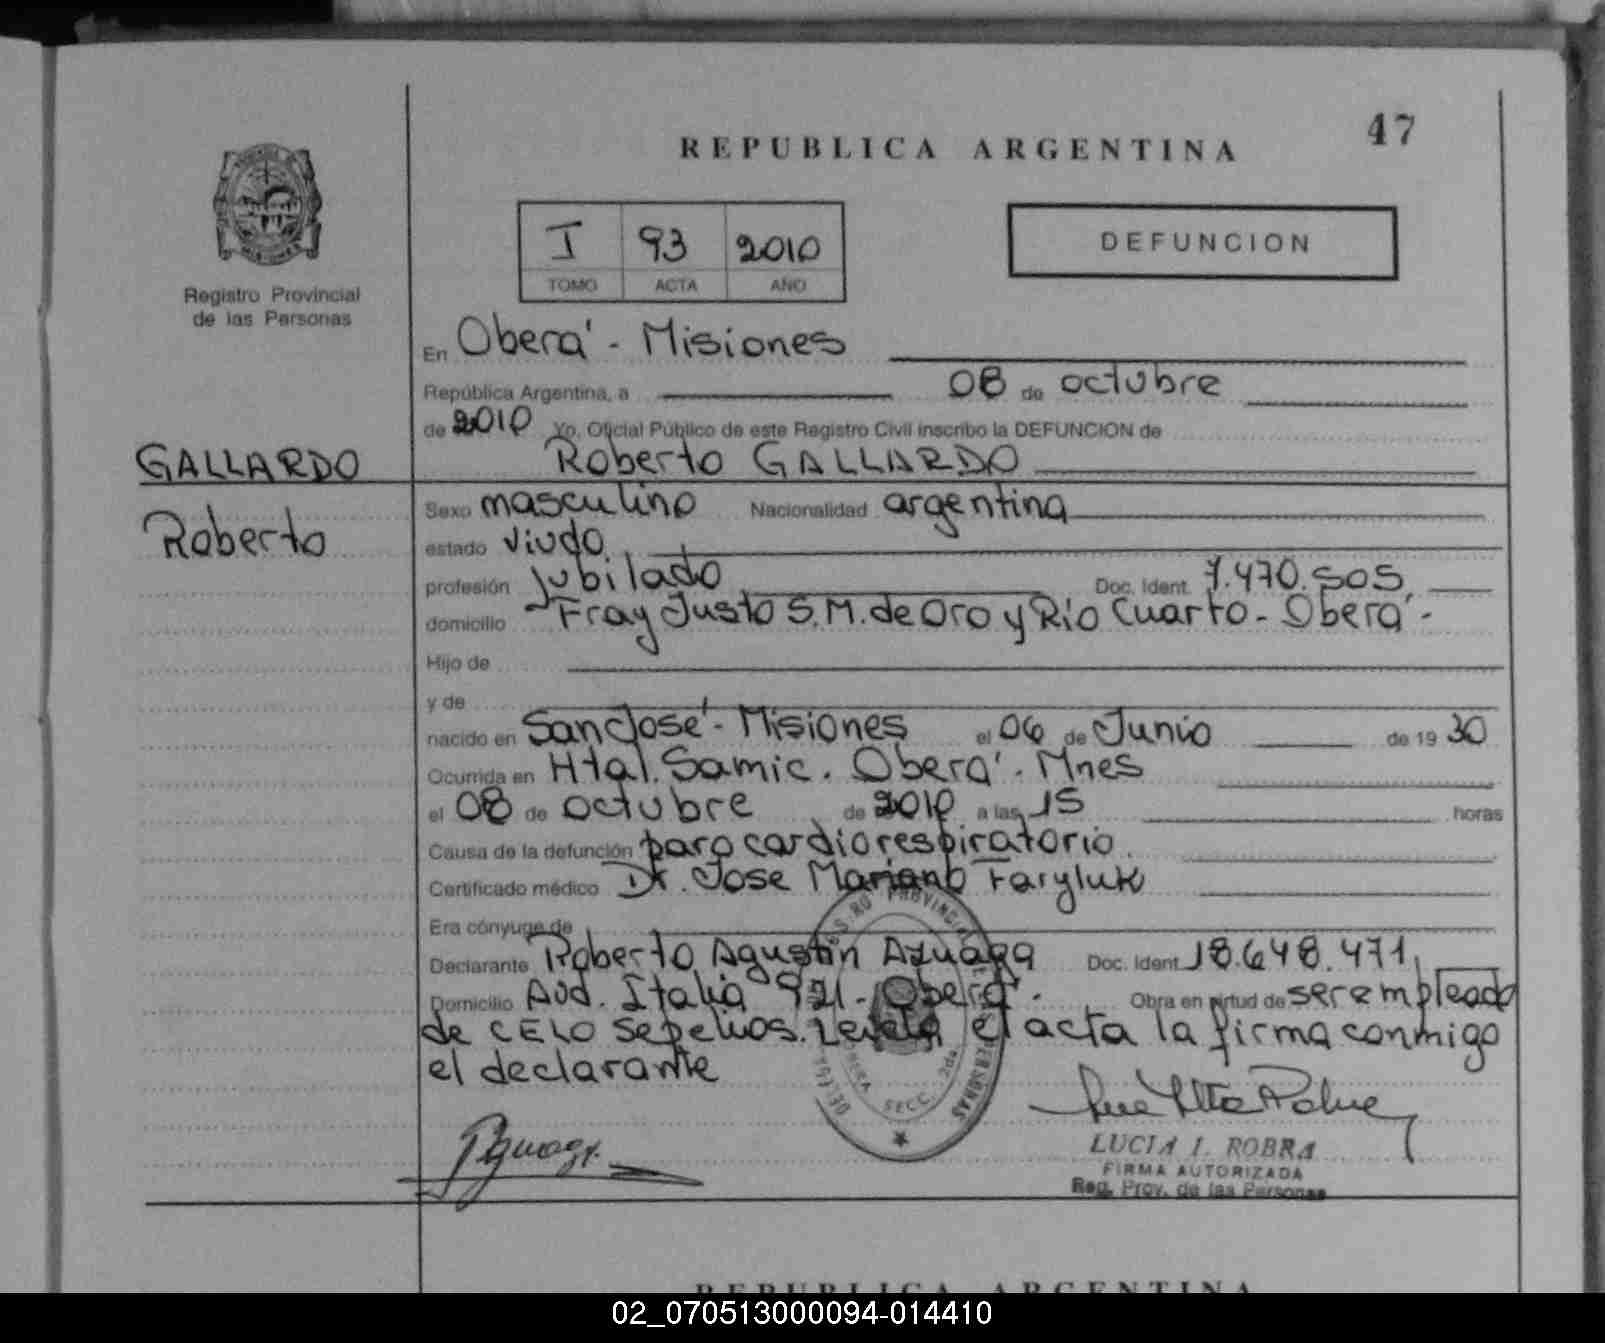 47
REPUBLICA ARGENTINA
I 93 2010
TOMO ACTA AÑO
DEFUNCION
Registro Provincial
de las Personas
En Oberá - Misiones
República Argentina, a 08 de octubre
de 2010 Yo, Oficial Público de este Registro Civil inscribo la DEFUNCION de
Roberto GALLARDO
GALLARDO
Roberto
Sexo masculino Nacionalidad argentina
estado viudo
profesión jubilado Doc. Ident. 7.470.505
domicilio Fray Justo S.M. de Oro y Río Cuarto - Oberá -
Hijo de
y de
nacido en San José - Misiones el 06 de Junio de 1930
Ocurrida en Htal. Samic. Oberá. Mnes
el 08 de octubre de 2010 a las 15 horas
Causa de la defunción paro cardiorespiratorio
Certificado médico Dr. Jose Mariano Faryluk
Era cónyuge de
Declarante Roberto Agustin Azuaga Doc. Ident 18.648.471
Domicilio Avd. Italia 921 - Oberá - Obra en virtud de ser empleado
de CELO Sepelios. Leída el acta la firma conmigo
el declarante
LUCIA I. ROBRA
FIRMA AUTORIZADA
Reg. Prov. de las Personas
REPUBLICA ARGENTINA
02_070513000094-014410